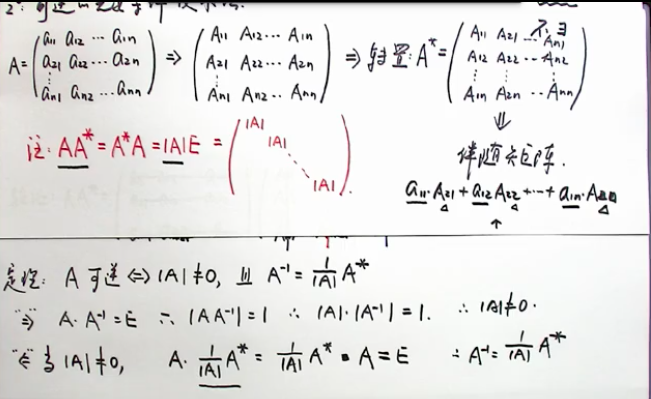 A = (a11 a12 ⋯ a1n
a21 a22 ⋯ a2n
⋮
an1 an2 ⋯ ann) ⇒ (A11 A12 ⋯ A1n
A21 A22 ⋯ A2n
⋮
An1 An2 ⋯ Ann) ⇒ 转置: A* = (A11 A21 ⋯ An1
A12 A22 ⋯ An2
⋮
A1n A2n ⋯ Ann)
⇓
伴随矩阵.
注: AA* = A*A = |A|E = (|A|
|A|
⋱
|A|).
a11·A21 + a12 A22 + ⋯ + a1n·
↑
定理: A 可逆 ⇔ |A| ≠ 0, 且 A⁻¹ = 1/|A| A*
"⇒" A·A⁻¹ = E ∴ |AA⁻¹| = 1 ∴ |A|·|A⁻¹| = 1. ∴ |A| ≠ 0.
"⇐" 当 |A| ≠ 0, A· 1/|A| A* = 1/|A| A* · A = E ∴ A⁻¹ = 1/|A| A*